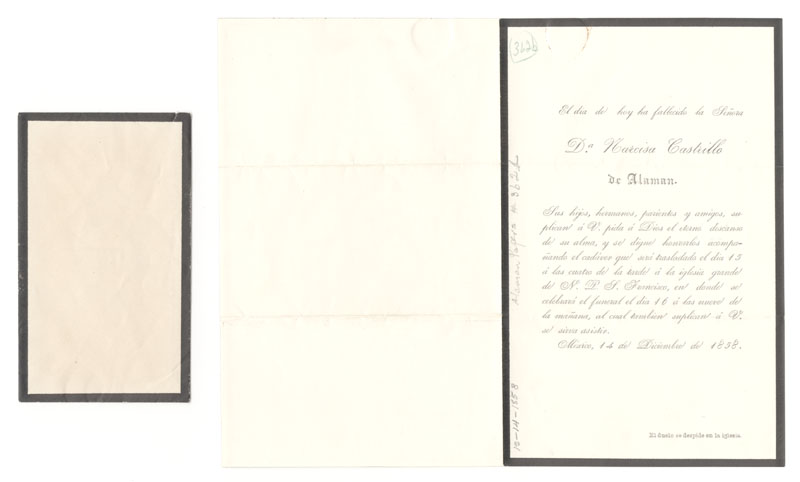 362b
El dia de hoy ha fallecido la Señora
D.ª Narcisa Castrillo
de Alaman.
Sus hijos, hermanos, parientes y amigos, su-
plican á V. pida á Dios el eterno descanso
de su alma, y se digne honrarlos acompa-
ñando el cadáver que será trasladado el dia 15
á las cuatro de la tarde á la iglesia grande
de N. P. S. Francisco, en donde se
celebrará el funeral el dia 16 á las nueve de
la mañana, al cual tambien suplican á V.
se sirva asistir.
México, 14 de Diciembre de 1858.
El duelo se despide en la iglesia.
Alaman Papers # 362b
12-14-1858